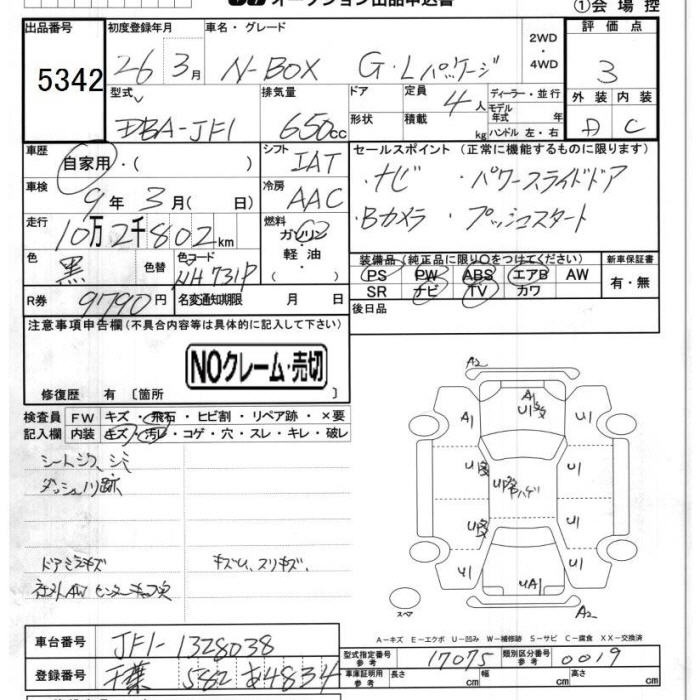 オークション出品申込書
①会場控
出品番号 初度登録年月 車名・グレード 2WD・4WD 評価点
5342 26年3月 N-BOX G・Lパッケージ 3
型式 排気量 ドア 定員 ディーラー・並行 外装 内装
DBA-JF1 650cc 形状 積載 4人 kg モデル年式 年 ハンドル 左・右 C
車歴 自家用・( ) シフト IAT セールスポイント (正常に機能するものに限ります)
車検 9年3月( 日) 冷房 AAC ・ナビ ・パワースライドドア
走行 10万2千802km 燃料 ガソリン・軽油・ ・Bカメラ ・プッシュスタート
色 黒 色替 色コード NH731P 装備品(純正品に限り○をつけてください) 新車保証書
PS PW ABS エアB AW 有・無
SR ナビ TV カワ
R券 9790円 名変通知期限 月 日 後日品
注意事項申告欄(不具合内容等は具体的に記入して下さい)
NOクレーム・売切
修復歴 有 〔箇所 〕
検査員記入欄 FW キズ・飛石・ヒビ割・リペア跡・×要
内装 キズ・汚レ・コゲ・穴・スレ・キレ・破レ
シートシワ、シミ
ダッシュ跡
ドアミラーキズ キズU、スリキズ、
社外AW センターキャップ欠
A2
A1
U1
A1 U1
U1
U1
U1
ハゲ
U1
U1
U1 U1
UA1
スペア
A2
A-キズ E-エクボ U-凹み W-補修跡 S-サビ C-腐食 XX-交換済
車台番号 JF1-1328038
登録番号 千葉 582 あ4834
型式指定番号 参考 17075 類別区分番号 参考 0019
車庫証明用 参考 長さ cm 幅 cm 高さ cm